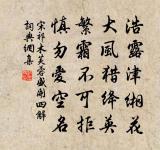 浩露津緗花
大風猎絳英
繁霜不可拒
慎勿愛空名
宋祁木芙蓉盛開四解
詞典網集